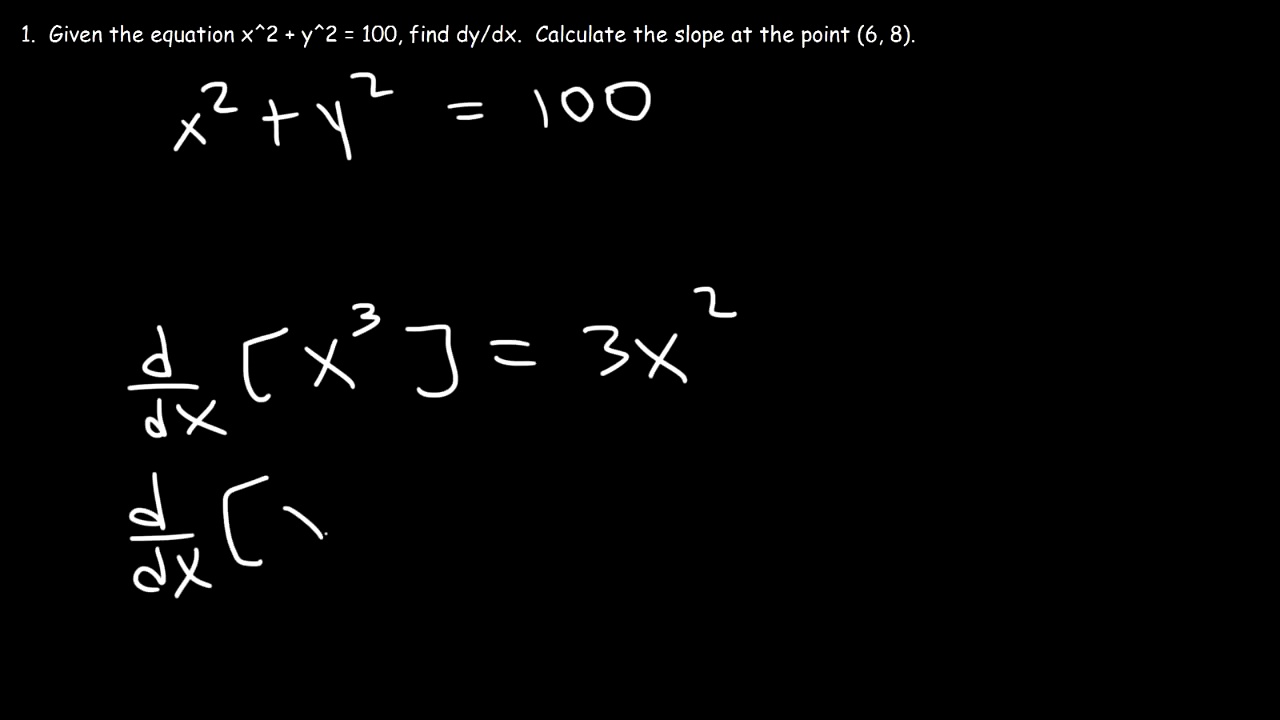 1. Given the equation x^2 + y^2 = 100, find dy/dx. Calculate the slope at the point (6, 8).
x² + y² = 100
d/dx [x³] = 3x²
d/dx [